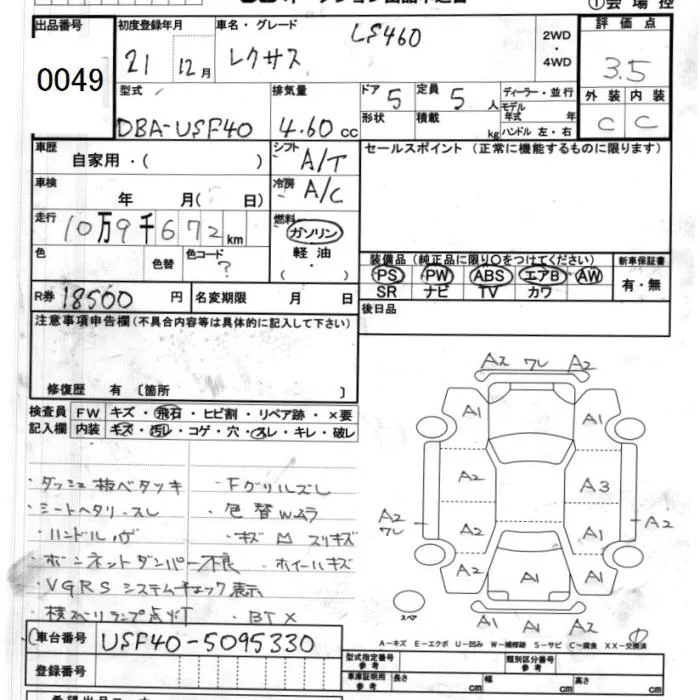 ①会場控
出品番号 初度登録年月 車名・グレード 2WD・4WD 評価点
0049 21 12月 レクサス LS460 3.5
型式 排気量 ドア 定員 ディーラー・並行 外装 内装
モデル年式 年
DBA-USF40 4.60cc 5 5人 C C
形状 積載 kg ハンドル 左・右
車歴 自家用・( ) シフト A/T セールスポイント(正常に機能するものに限ります)
車検 年 月( 日) 冷房 A/C
走行 10万9千672km 燃料 ガソリン
軽油
( ・ )
色 色替 色コード ?
装備品(純正品に限り○をつけてください) 新車保証書
PS PW ABS エアB AW 有・無
SR ナビ TV カワ
R券 18500円 名変期限 月 日
後日品
注意事項申告欄(不具合内容等は具体的に記入して下さい)
修復歴 有 〔箇所 〕
検査員 FW キズ・飛石・ヒビ割・リペア跡・×要
記入欄 内装 キズ・汚レ・コゲ・穴・スレ・キレ・破レ
・ダッシュ板ベタツキ ・Fグリルズレ
・シートヘタリ・スレ ・色替Wムラ
・ハンドル ・キズ M スリキズ
・ボンネットダンパー不良 ・ホイールキズ
・VGRSシステムチェック表示
・横スベリランプ点灯 ・BTX
A2 フレ A2
A1 A1
A2 A3
A2 フレ A2 A1 A2
A2 A1 A1
スペア
A1 A1 A2
A-キズ E-エクボ U-凹み W-補修跡 S-サビ C-腐食 XX-交換済
車台番号 USF40-5095330
登録番号
型式指定番号 参考 類別区分番号 参考
車庫証明用 参考 長さ cm 幅 cm 高さ cm